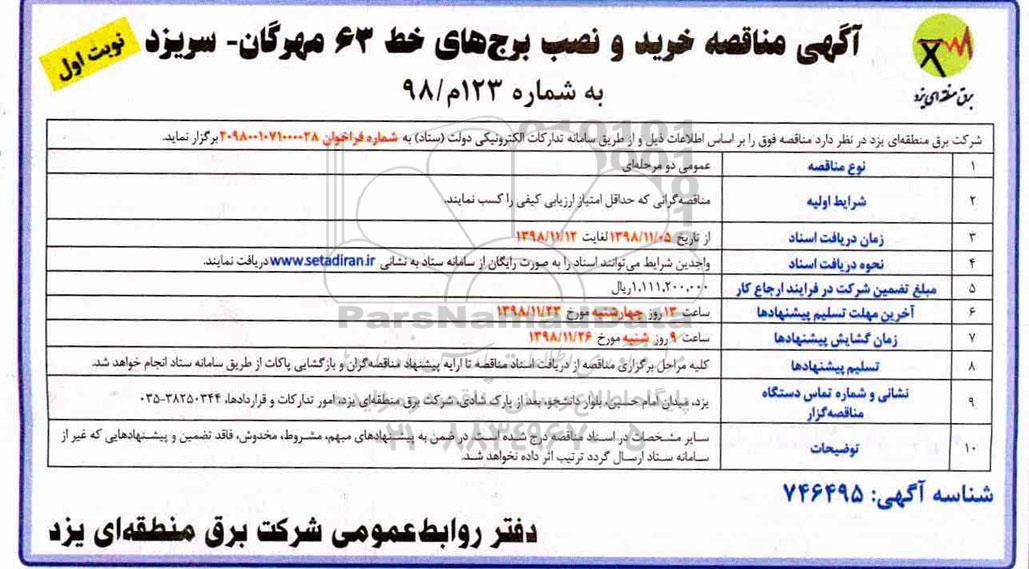 آگهی مناقصه خرید و نصب برج‌های خط ۶۳ مهرگان- سریزد
نوبت اول
به شماره ۱۲۳م/۹۸
برق منطقه‌ای یزد
شرکت برق منطقه‌ای یزد در نظر دارد مناقصه فوق را بر اساس اطلاعات ذیل و از طریق سامانه تدارکات الکترونیکی دولت (ستاد) به شماره فراخوان ۲۰۹۸۰۰۱۰۷۱۰۰۰۰۲۸ برگزار نماید.
۱ نوع مناقصه عمومی دو مرحله‌ای
۲ شرایط اولیه مناقصه‌گرانی که حداقل امتیاز ارزیابی کیفی را کسب نمایند.
۳ زمان دریافت اسناد از تاریخ ۱۳۹۸/۱۱/۰۵ لغایت ۱۳۹۸/۱۱/۱۲
۴ نحوه دریافت اسناد واجدین شرایط می‌توانند اسناد را به صورت رایگان از سامانه ستاد به نشانی www.setadiran.ir دریافت نمایند.
۵ مبلغ تضمین شرکت در فرایند ارجاع کار ۱،۱۱۱،۲۰۰،۰۰۰ریال
۶ آخرین مهلت تسلیم پیشنهادها ساعت ۱۳ روز چهارشنبه مورخ ۱۳۹۸/۱۱/۲۳
۷ زمان گشایش پیشنهادها ساعت ۹ روز شنبه مورخ ۱۳۹۸/۱۱/۲۶
۸ تسلیم پیشنهادها کلیه مراحل برگزاری مناقصه از دریافت اسناد مناقصه تا ارایه پیشنهاد مناقصه‌گران و بازگشایی پاکات از طریق سامانه ستاد انجام خواهد شد.
۹ نشانی و شماره تماس دستگاه مناقصه‌گزار یزد، میدان امام حسین، بلوار دانشجو، بعد از پارک شادی، شرکت برق منطقه‌ای یزد، امور تدارکات و قراردادها، ۳۸۲۵۰۳۴۴-۰۳۵
۱۰ توضیحات سایر مشخصات در اسناد مناقصه درج شده است. در ضمن به پیشنهادهای مبهم، مشروط، مخدوش، فاقد تضمین و پیشنهادهایی که غیر از
سامانه ستاد ارسال گردد ترتیب اثر داده نخواهد شد.
شناسه آگهی: ۷۴۶۴۹۵
دفتر روابط‌عمومی شرکت برق منطقه‌ای یزد
ParsNamadData